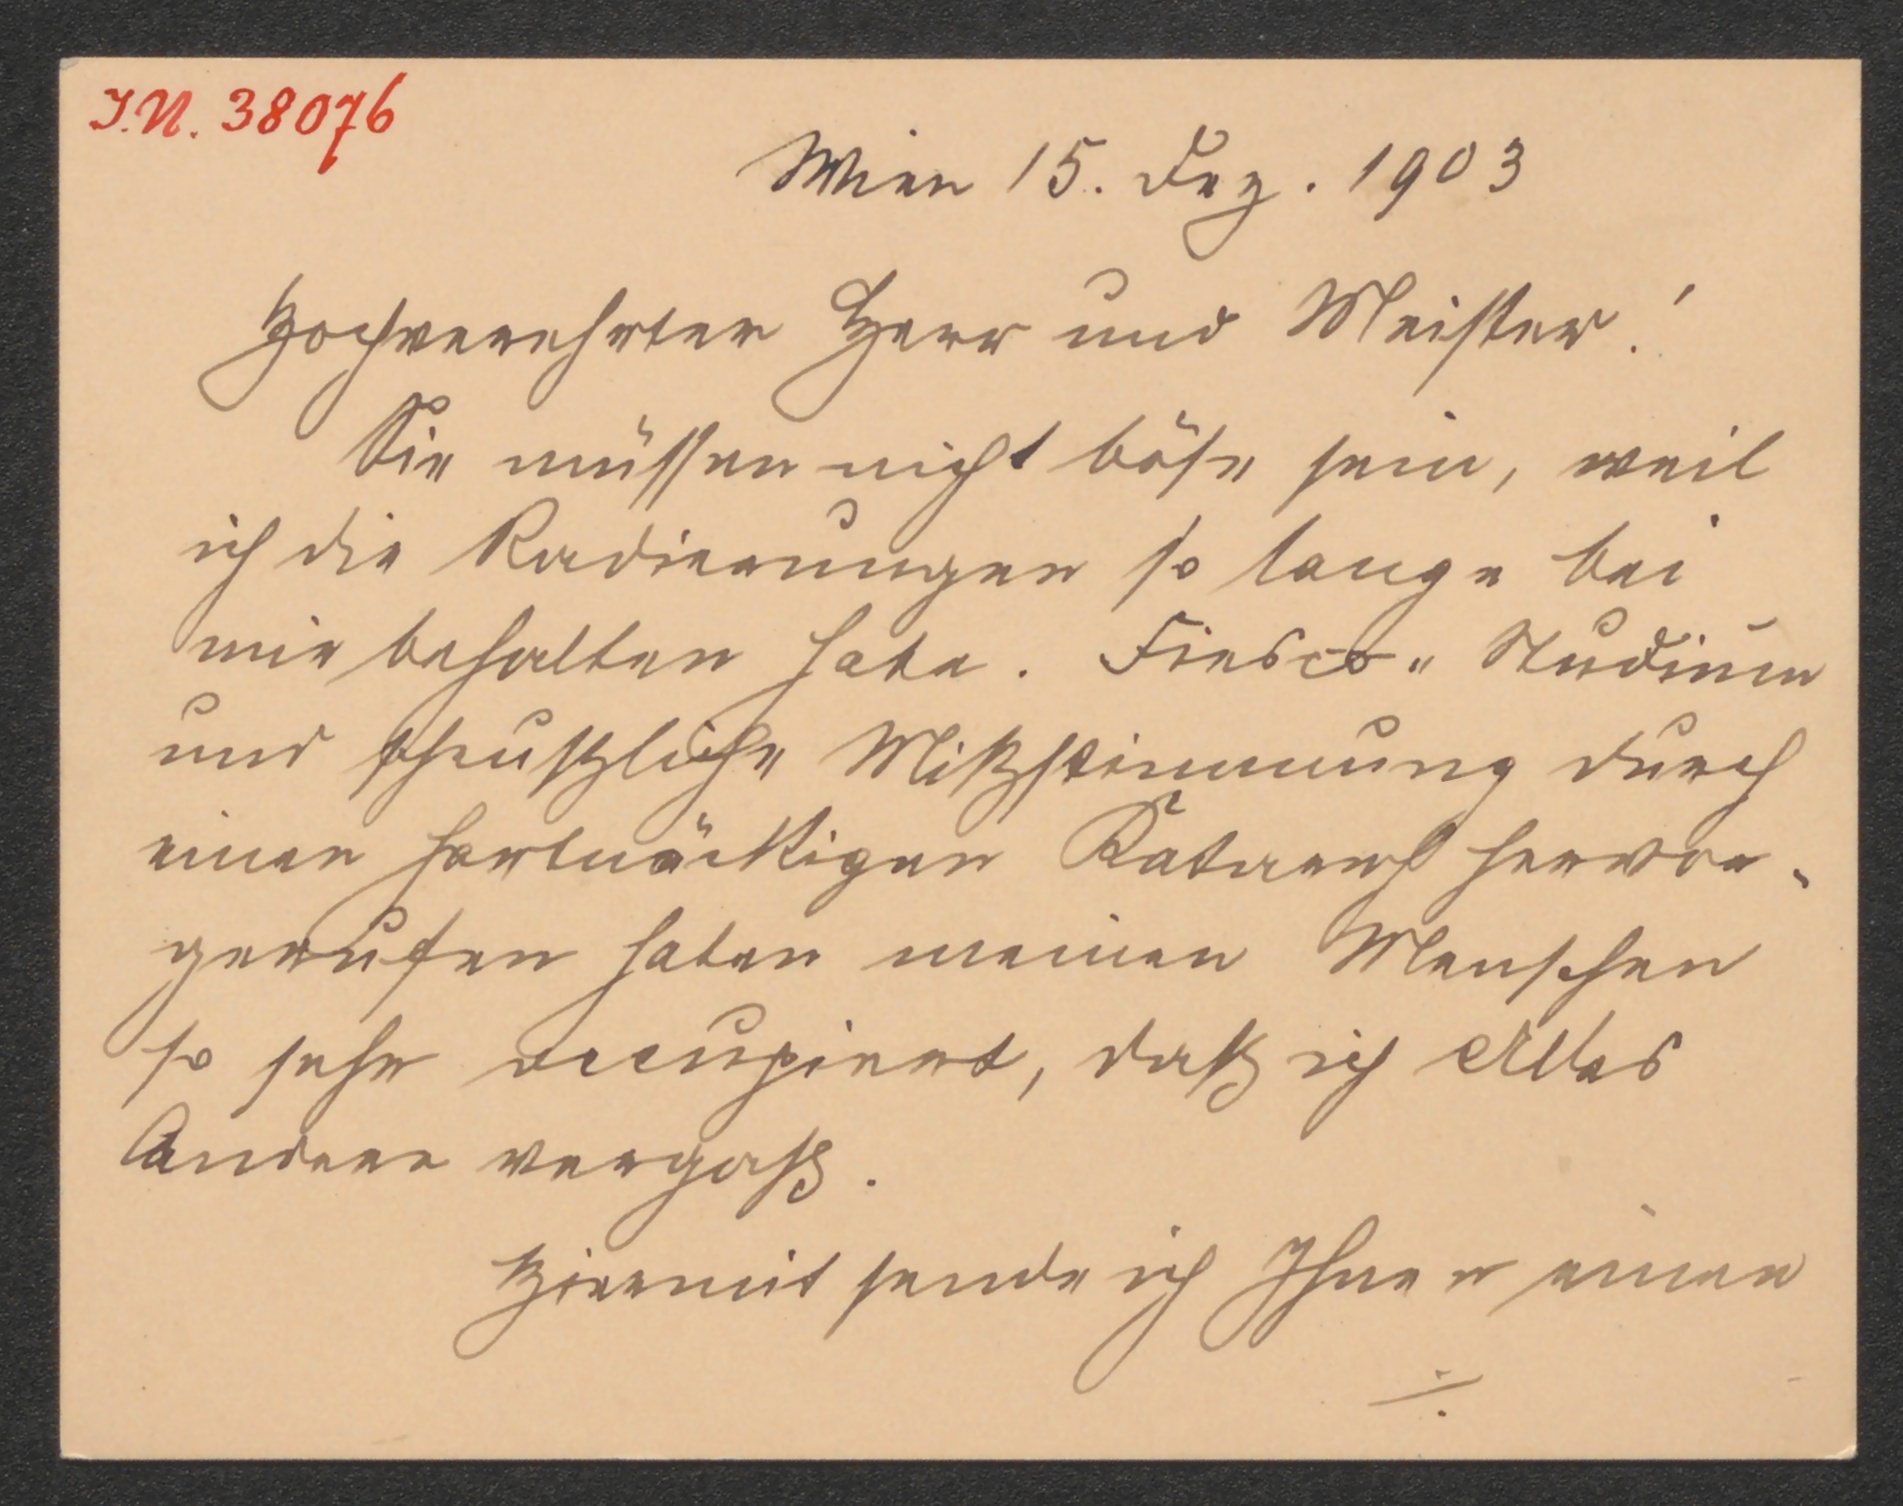 I.N. 38076
Wien 15. Dez. 1903
Hochverehrter Herr und Meister!
Sie müssen nicht böse sein, weil
ich die Radierungen so lange bei
mir behalten habe. Fiesco-Studium
und scheußliche Mißstimmung durch
einen hartnäckigen Katarrh hervor-
gerufen haben meinen Menschen
so sehr occupiert, daß ich Alles
Andere vergaß.
Hiermit sende ich Ihnen einen
./.